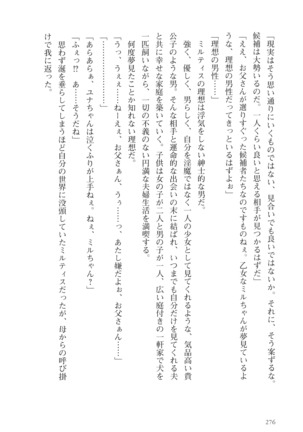 『現実はそう思い通りにいくものではない。見合いでも良いではないか。それに、そう案ずるな。
候補は大勢いるのだ。一人くらい良いと思える相手が見つかるはずだ』
「ええ、お父さんが選りすぐった候補者たちなのですものねぇ。乙女なミルちゃんが夢見ているよ
うな、理想の男性だってきっといるはずよぉ」
「理想の男性……」
ミルティスの理想は浮気をしない紳士的な男だ。
強く、優しく、男らしく、自分を淫魔ではなく一人の少女として見てくれるような、気品高い貴
公子のような男。そんな相手と運命的な出会いの末に結ばれ、いつまでも自分だけを見てくれる夫
と共に幸せな家庭を築いていく。子供は女の子が二人と男の子が一人、広い庭付きの一軒家で犬を
一匹飼いながら、一切の不義のない円満な夫婦生活を満喫する。
何度夢見たことか知れない理想だ。
「うっ、うぇぇ……ねーぇぇ、お父さぁん、うぅ……っ、あたし嫌だよぉ、お父さぁん……」
「あらあらぁ、ユナちゃんは泣くふりが上手ねぇ。ねぇ、ミルちゃん？」
「ふぇっ!?　あ……そうだね」
思わず涎を垂らしてしまうほど自分の世界に没頭していたミルティスだったが、母からの呼び掛
けで我に返った。
276